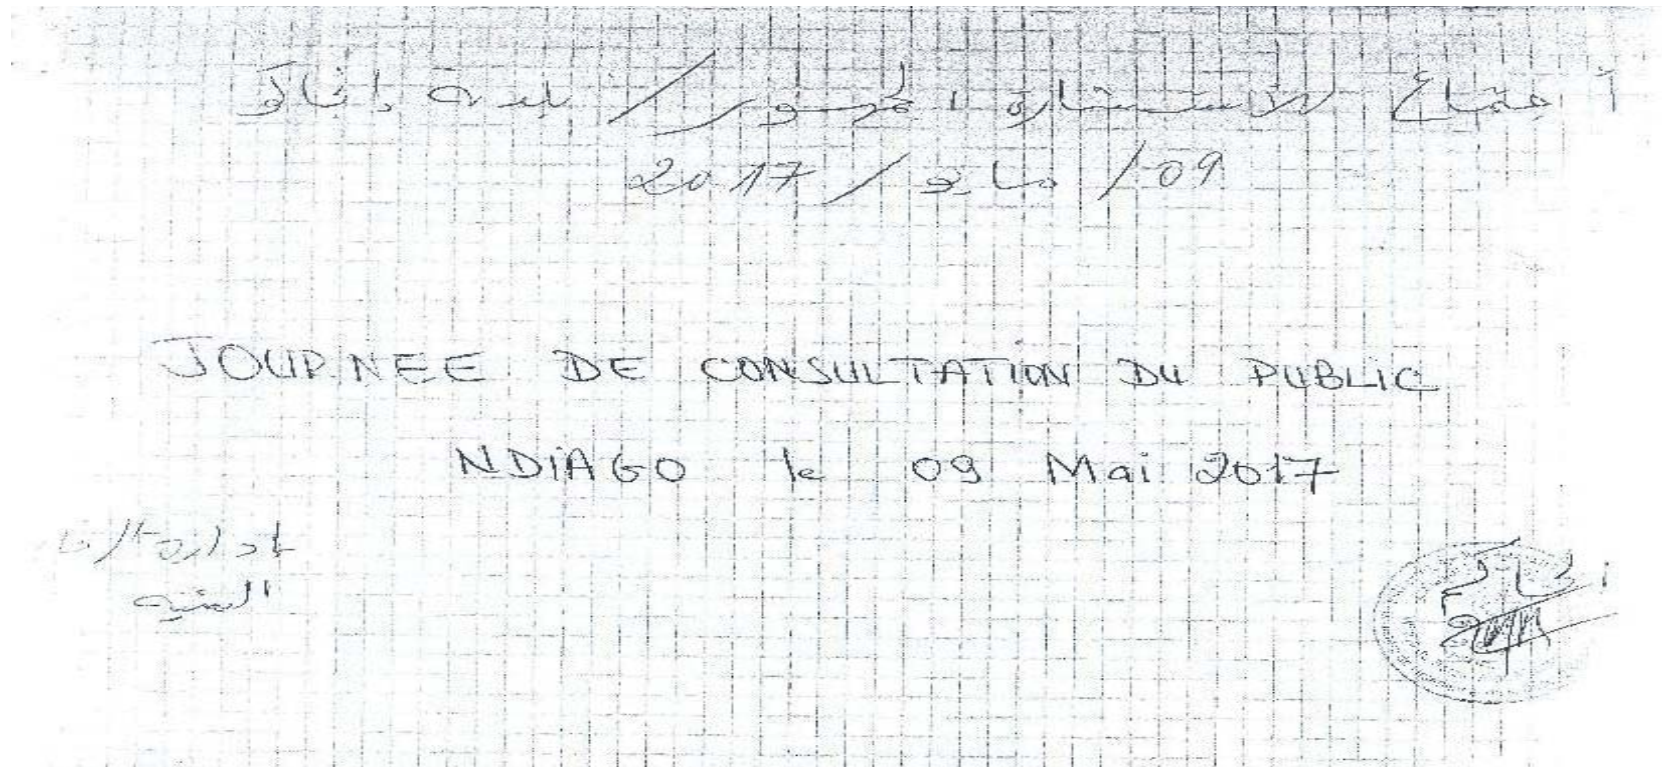 اجتماع للاستشارة الجمهور / بلدية انجاكو
09 / مايو / 2017
JOURNEE DE CONSULTATION DU PUBLIC
NDIAGO le 09 Mai 2017
الحاكم